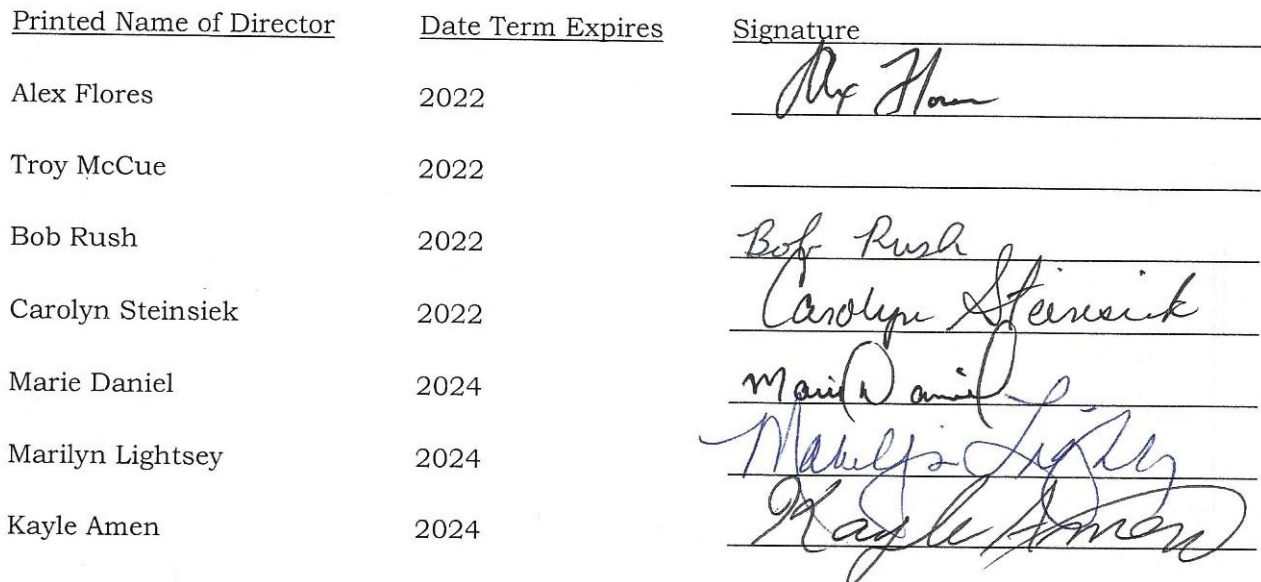 Printed Name of Director Date Term Expires Signature
Alex Flores 2022 Alex Flores
Troy McCue 2022
Bob Rush 2022 Bob Rush
Carolyn Steinsiek 2022 Carolyn Steinsiek
Marie Daniel 2024 Marie Daniel
Marilyn Lightsey 2024 Marilyn Lightsey
Kayle Amen 2024 Kayle Amen